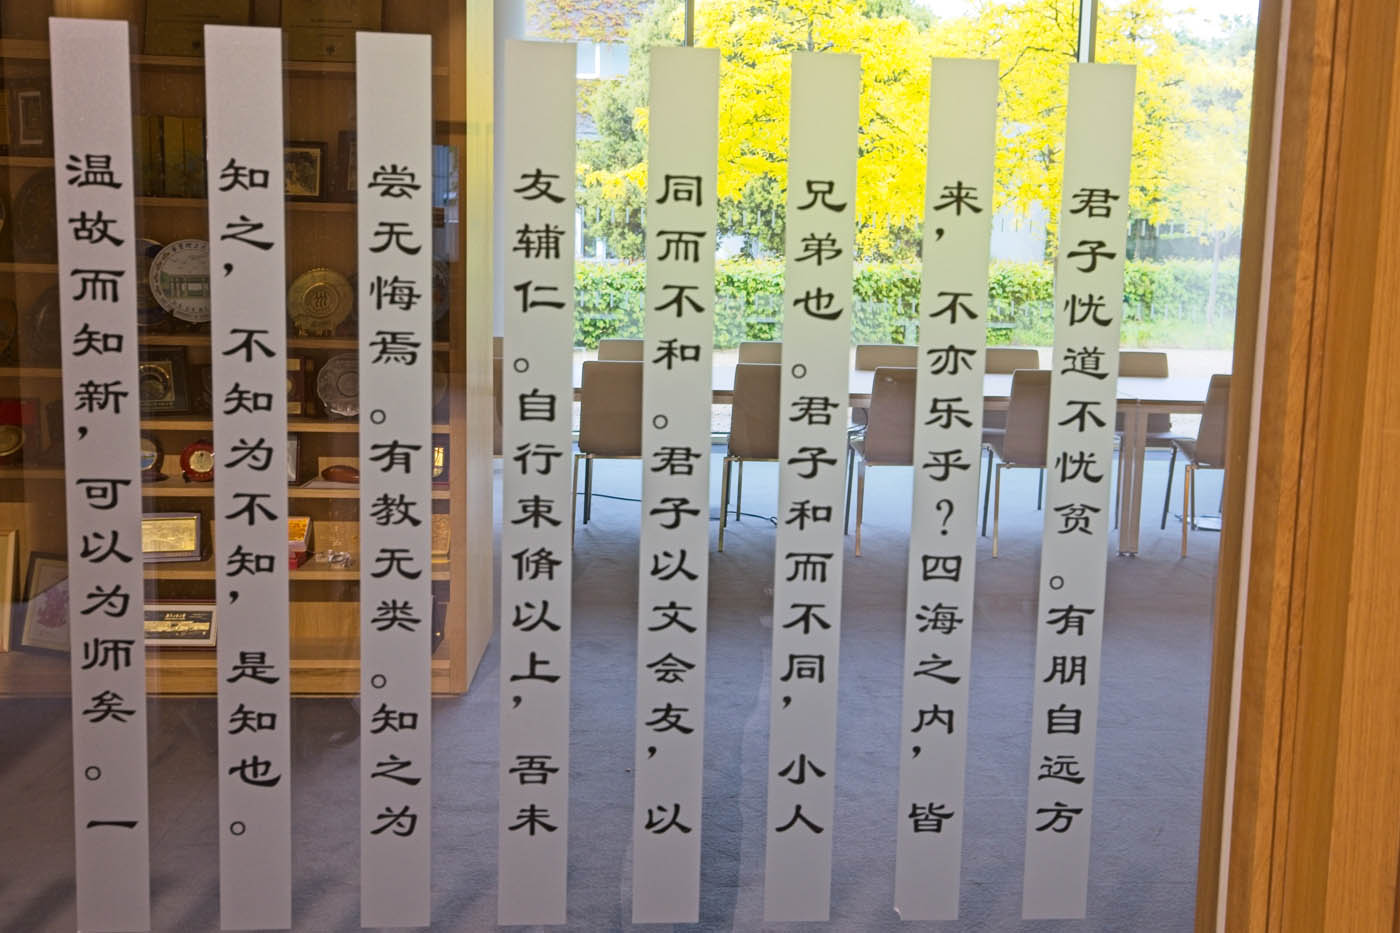 君子忧道不忧贫。有朋自远方
来，不亦乐乎？四海之内，皆
兄弟也。君子和而不同，小人
同而不和。君子以文会友，以
友辅仁。自行束脩以上，吾未
尝无悔焉。有教无类。知之为
知之，不知为不知，是知也。
温故而知新，可以为师矣。一